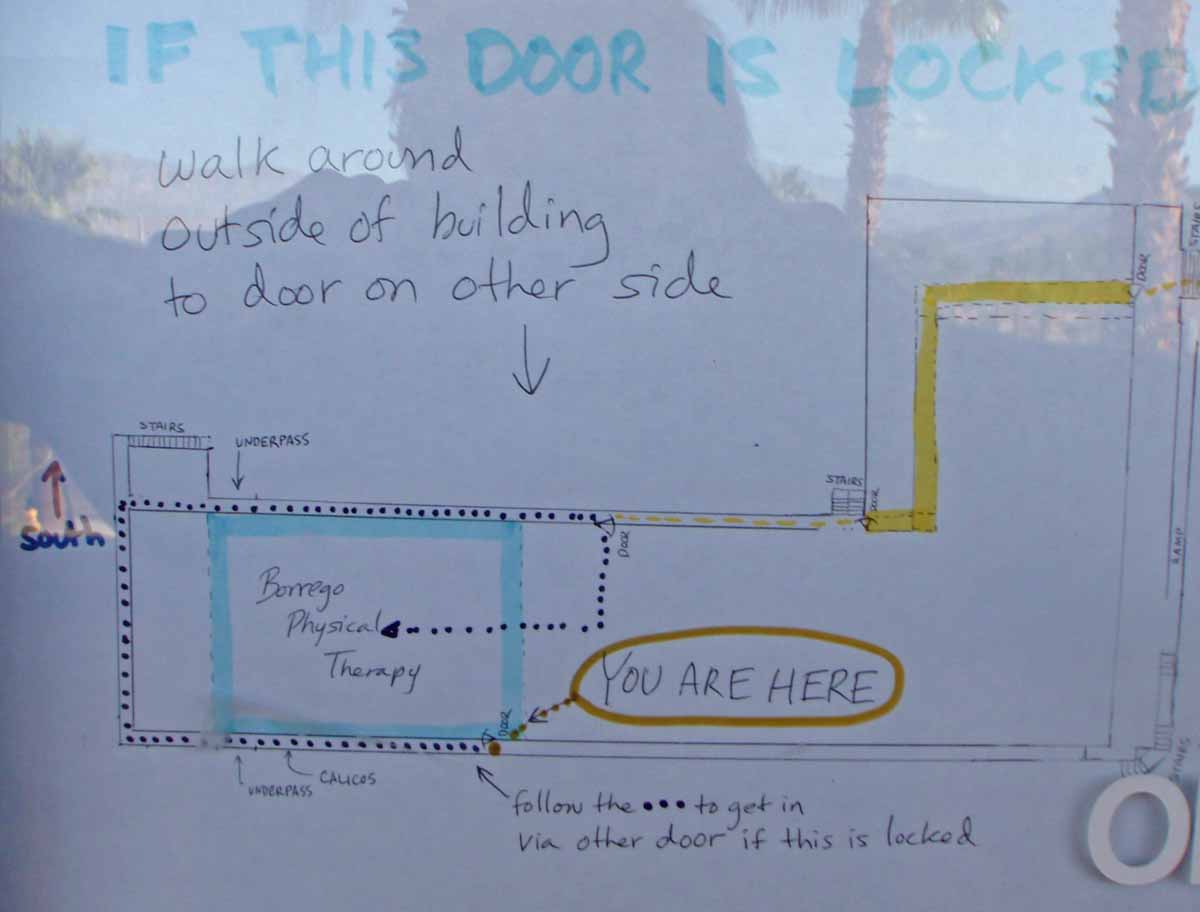 IF THIS DOOR IS LOCKED
walk around
outside of building
to door on other side
STAIRS
DOOR
STAIRS
UNDERPASS
STAIRS
DOOR
South
DOOR
RAMP
Borrego
Physical
Therapy
YOU ARE HERE
DOOR
STAIRS
UNDERPASS
CALICOS
follow the ••• to get in
via other door if this is locked